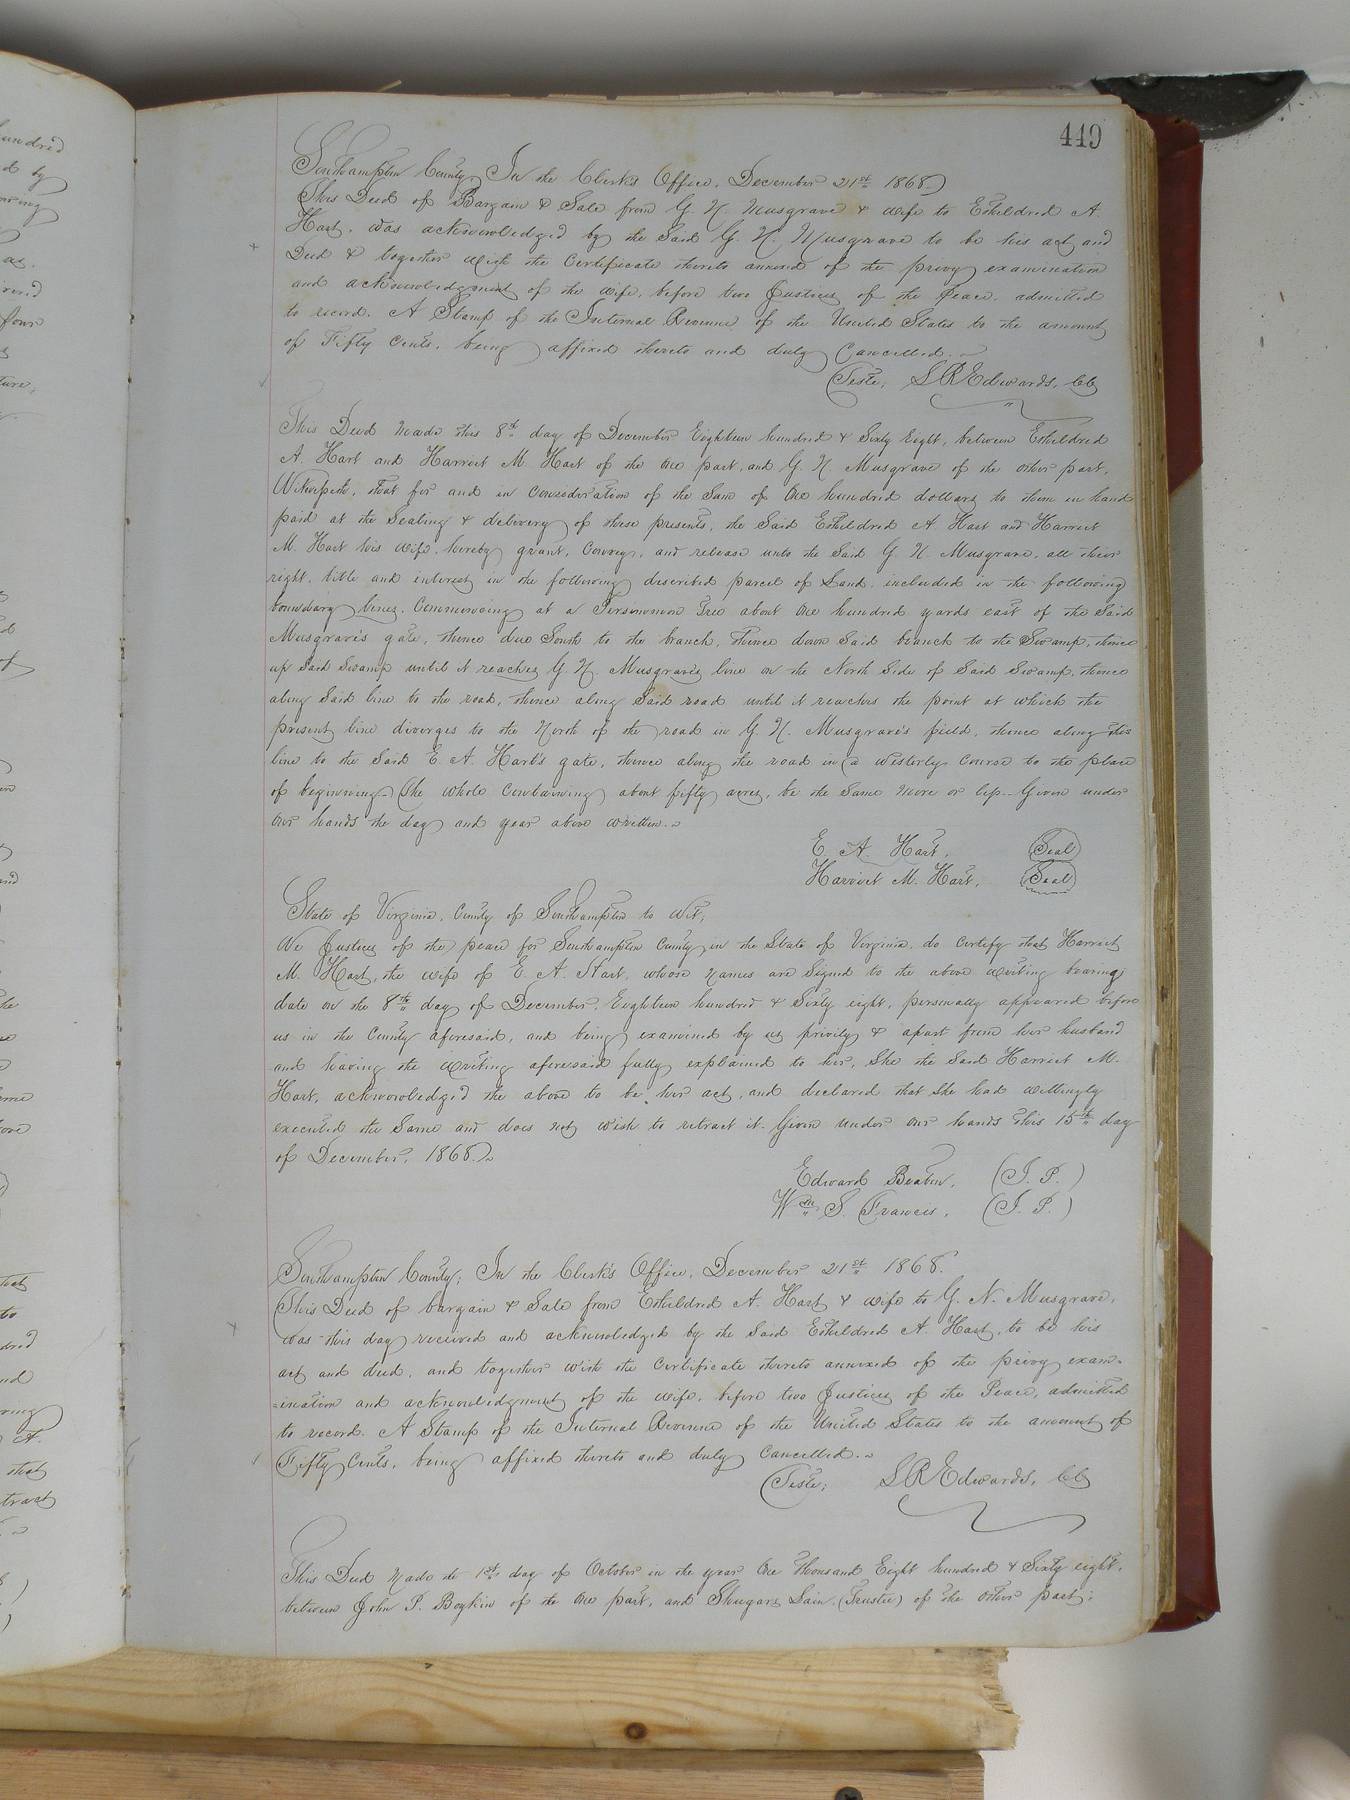 449
Southampton County, In the Clerk's Office, December 21st 1868.
This Deed of Bargain & Sale from G. N. Musgrave & wife to Etheldred A.
Hart, was acknowledged by the Said G. N. Musgrave to be his act and
Deed & together with the Certificate thereto annexed of the privy examination
and acknowledgment of the wife, before two Justices of the Peace, admitted
to record. A Stamp of the Internal Revenue of the United States to the amount
of Fifty Cents, being affixed thereto and duly Cancelled.
Teste, L R Edwards, CC
This Deed Made this 8th day of December Eighteen hundred & Sixty Eight, between Etheldred
A. Hart and Harriet M. Hart of the one part, and G. N. Musgrave of the other part,
Witnesseth, that for and in consideration of the Sum of One hundred dollars to them in hand
paid at the Sealing & delivery of these presents, the Said Etheldred A. Hart and Harriet
M. Hart his wife, hereby grant, Convey, and release unto the Said G. N. Musgrave, all their
right, title and interest in the following described parcel of Land, included in the following
boundary lines. Commencing at a Persimmon Tree about One hundred yards east of the Said
Musgrave's gate, thence due South to the branch, thence down Said branch to the Swamp, thence
up Said Swamp until it reaches G. N. Musgrave's line on the North Side of Said Swamp, thence
along Said line to the road, thence along Said road until it reaches the point at which the
present line diverges to the North of the road in G. N. Musgrave's field, thence along this
line to the Said E. A. Hart's gate, thence along the road in a Westerly Course to the place
of beginning. The whole Containing about fifty acres, be the Same More or less. Given under
Our hands the day and year above written.
E. A. Hart, (Seal)
Harriet M. Hart, (Seal)
State of Virginia, County of Southampton to Wit;
We Justices of the peace for Southampton County in the State of Virginia, do Certify that Harriet
M. Hart, the wife of E. A. Hart, whose Names are Signed to the above writing bearing
date on the 8th day of December, Eighteen hundred & Sixty eight, personally appeared before
us in the County aforesaid, and being examined by us privily & apart from her husband
and having the writing aforesaid fully explained to her, She the Said Harriet M.
Hart, acknowledged the above to be her act, and declared that She had willingly
executed the Same and does not wish to retract it. Given under our hands this 15th day
of December, 1868.
Edward Beaton, (J. P.)
Wm S. Francis, (J. P.)
Southampton County; In the Clerk's Office, December 21st 1868.
This Deed of bargain & Sale from Etheldred A. Hart & wife to G. N. Musgrave,
was this day received and acknowledged by the Said Etheldred A. Hart, to be his
act and deed, and together with the Certificate thereto annexed of the privy exam-
=ination and acknowledgment of the wife, before two Justices of the Peace, admitted
to record. A Stamp of the Internal Revenue of the United States to the amount of
Fifty Cents, being affixed thereto and duly Cancelled.
Teste; L R Edwards, CC
This Deed Made the 1st day of October in the year One thousand Eight hundred & Sixty eight,
between John P. Boykin of the One part, and Shugars Lain (Trustee) of the other part;